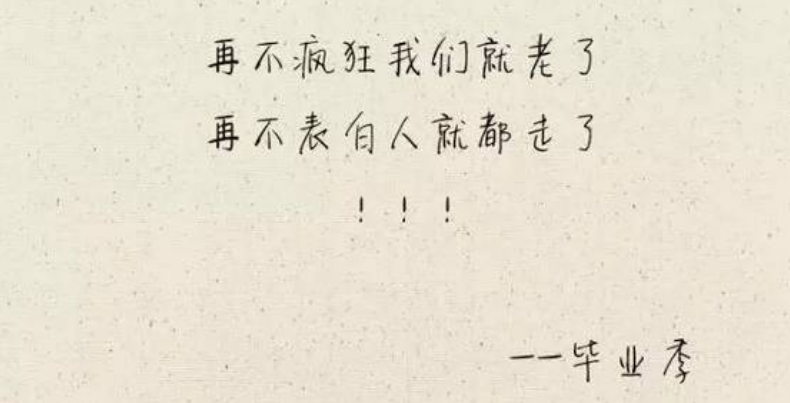 再不疯狂我们就老了
再不表白人就都走了
！！！
——毕业季